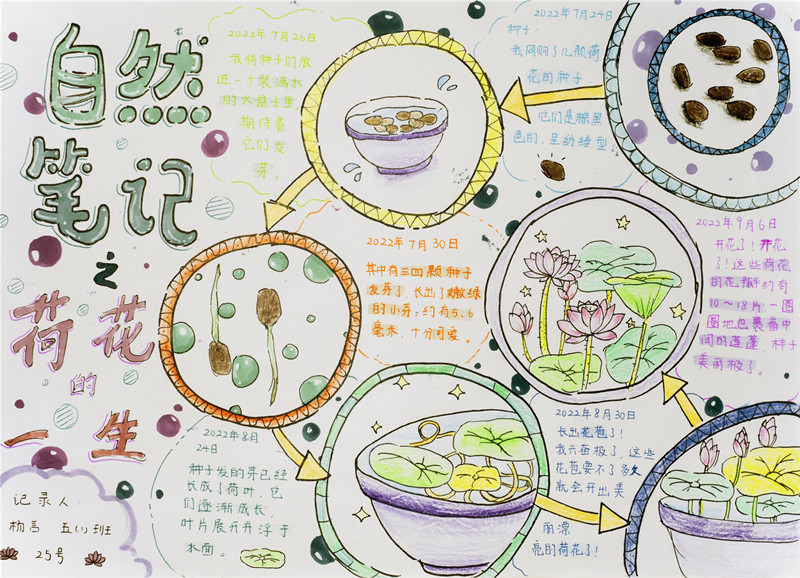 自然
笔记
之
荷花
的
一生
记录人
杨言 五(1)班
25号
2022年7月24日
种子:
我网购了几颗荷
花的种子,
它们是棕黑
色的,呈纺锤型。
2022年7月26日
我将种子们放
进一个装满水
的大盆子里,
期待着
它们发
芽。
2022年7月30日
其中有三四颗种子
发芽了,长出了嫩绿
的小芽,约有5、6
毫米,十分可爱。
2022年8月
24日
种子发的芽已经
长成了荷叶,它
们逐渐成长,
叶片展开并浮于
水面。
2022年8月30日
长出花苞了!
我兴奋极了,这些
花苞要不了多久
就会开出美
丽漂
亮的荷花了!
2022年9月6日
开花了!开花
了!这些荷花
的花瓣约有
10~18片一圈
圈地包裹着中
间的莲蓬,样子
美丽极了。